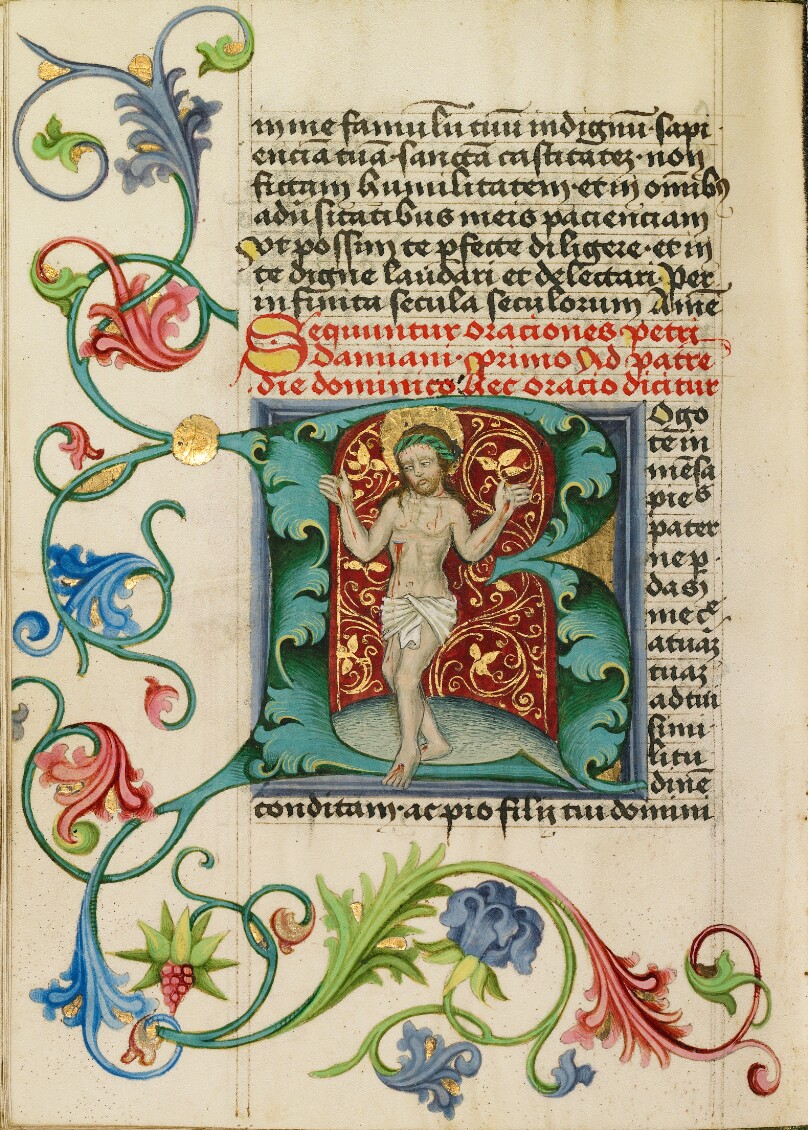 in me famulū tuū indignū· sapi
enciā tuā· sanctā castitatē· non
fictam humilitatem· et in omīb9
adūsitatibus meis pacienciam
Vt possim te pfecte diligere· et in
te digne laudari et delectari Per
infinita secula seculorum Amē
Sequuntur oraciones petri
damiani· primo Ad patrē
die dominico Hec oracio dicitur
Rogo
te in
mēsa
pies
pater
ne p
das
me c̄e
atuaz
tuaz
ad tui
simi
litu
dinē
conditam· ac pro filij tui domini